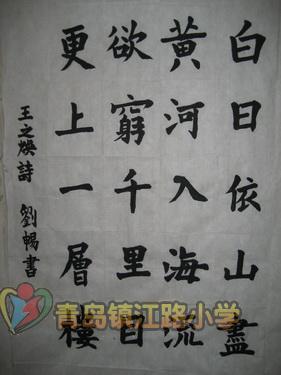 白日依山盡
黃河入海流
欲窮千里目
更上一層樓
王之焕詩 劉暢書
青岛镇江路小学